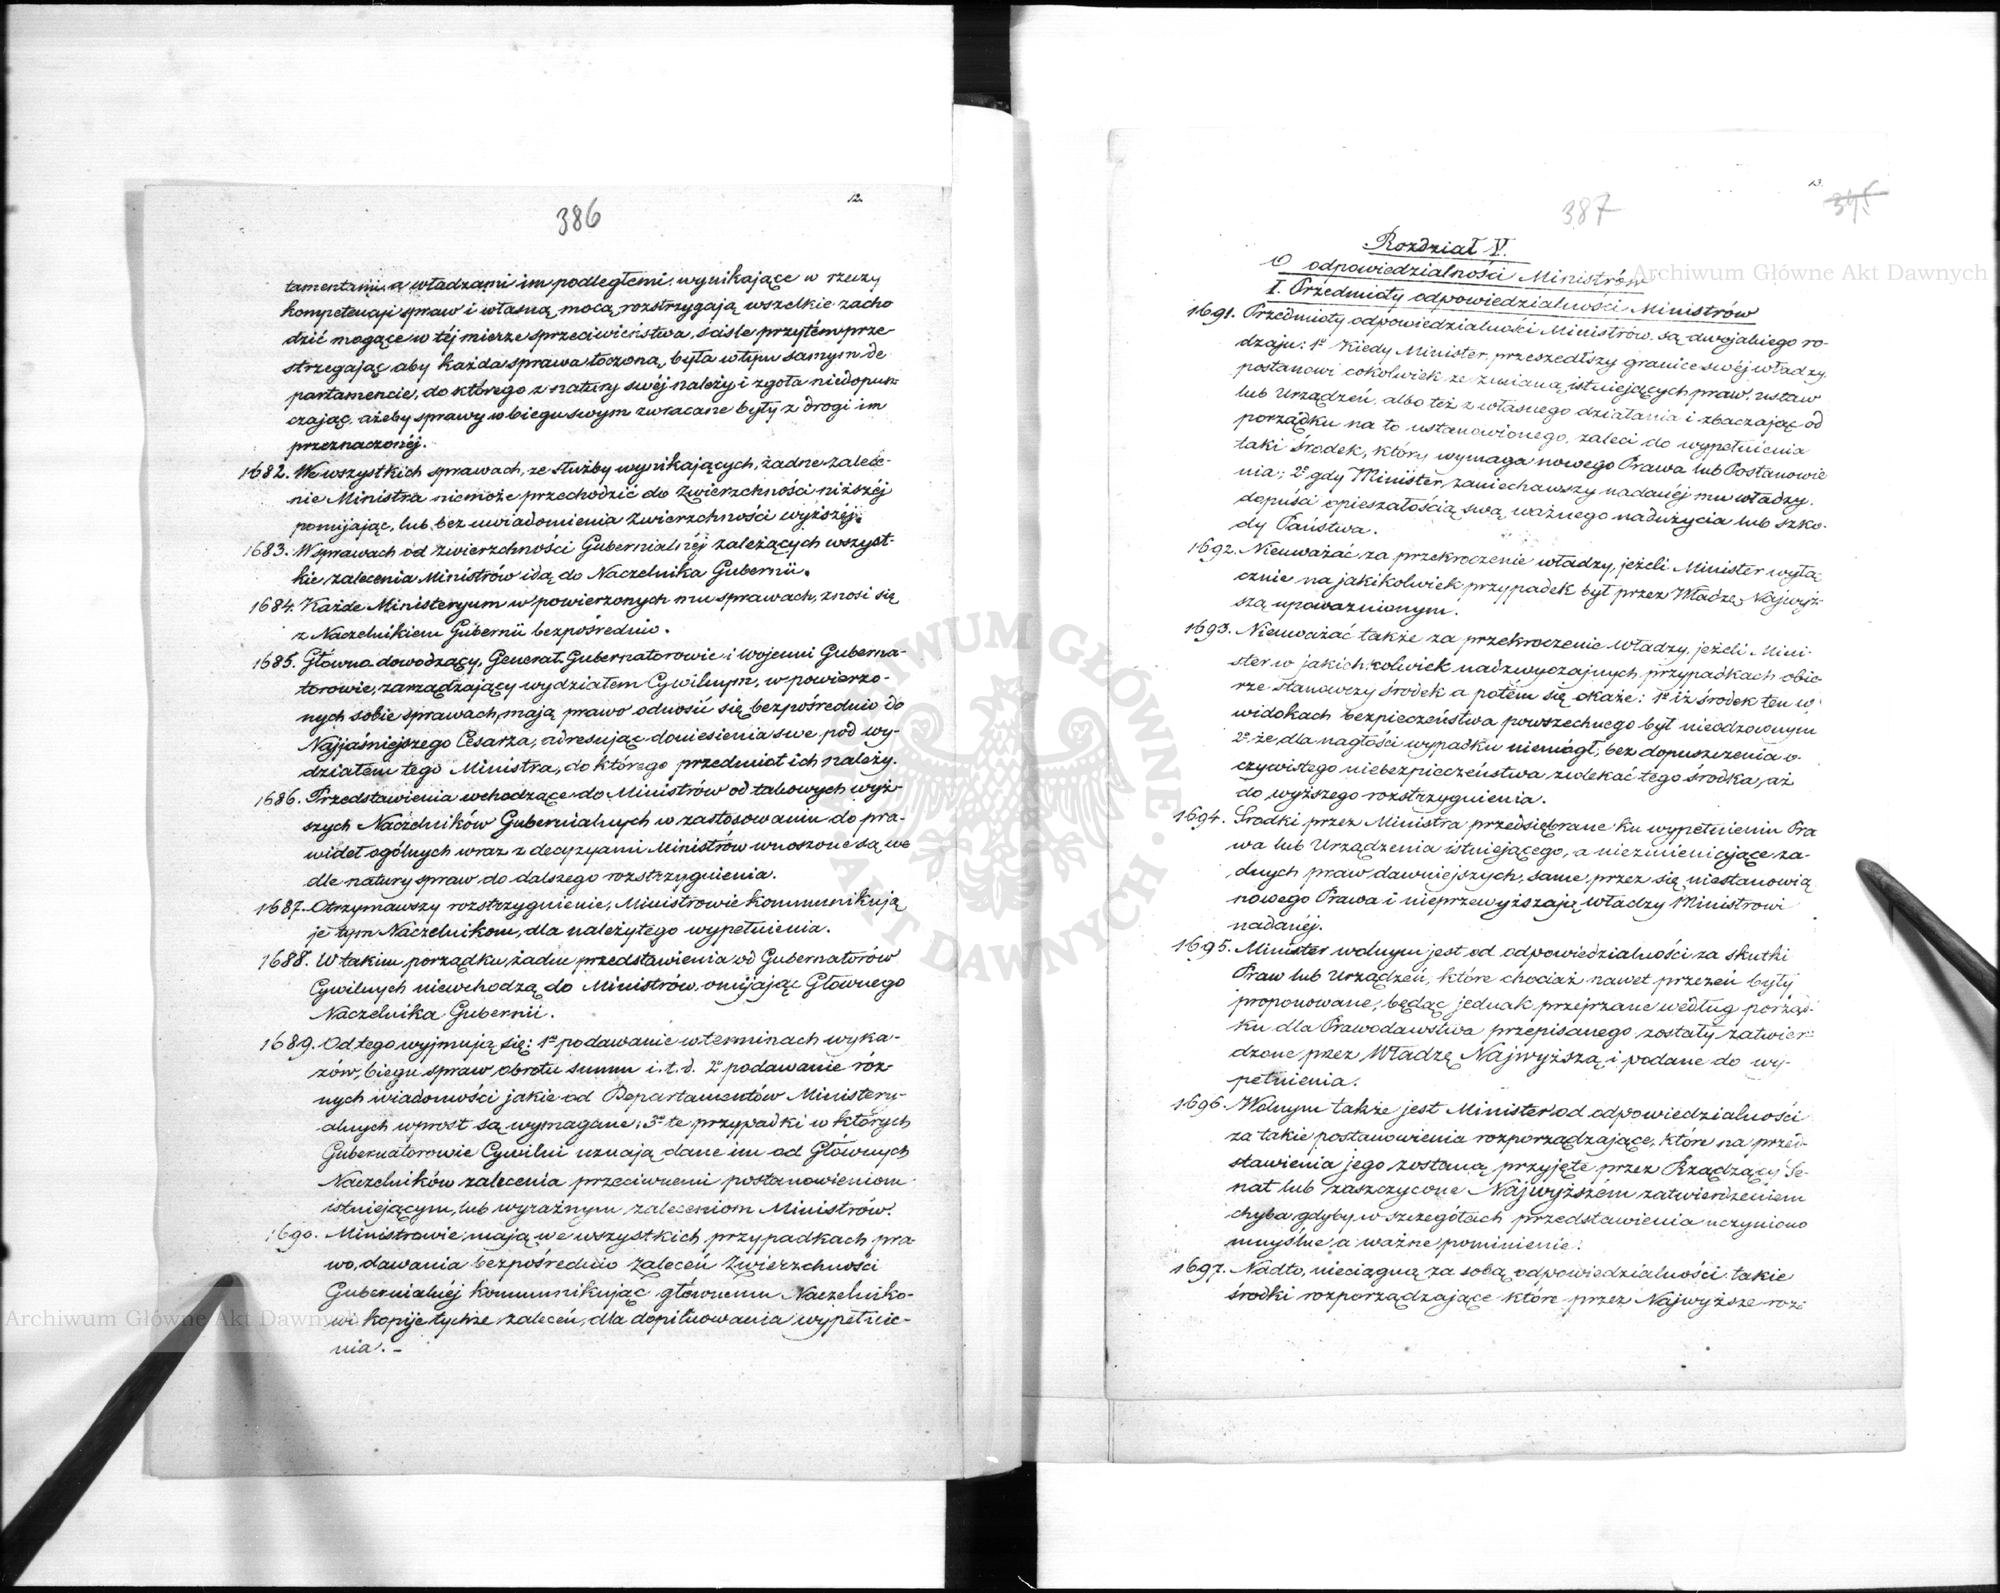 386
12.
tamentami a władzami im podległemi, wynikające w rzeczy
kompetencji spraw i własną mocą, rozstrzygają wszelkie zacho
dzić mogące w tej mierze sprzeciwieństwa, ściśle przytém prze-
strzegając aby każda sprawa toczoną była w tym samym de
partamencie, do którego z natury swéj należy i zgoła niedopusz
czając, ażeby sprawy w biegu swym zwracane były z drogi im
przeznaczonéj.
1682. We wszystkich sprawach, ze służby wynikających, żadne zalece-
nie Ministra niemoże przechodzić do Zwierzchności niższéj
pomijając, lub bez uwiadomienia Zwierzchności wyższéj.
1683. W sprawach od zwierzchności Gubernialnéj zależących wszyst-
kie zalecenia Ministrów idą do Naczelnika Gubernii.
1684. Każde Ministeryum w powierzonych mu sprawach, znosi się
z Naczelnikiem Gubernii bezpośrednio.
1685. Główno dowodzący, Generał Gubernatorowie i Wojenni Guberna-
torowie, zarządzający wydziałem Cywilnym, w powierzo-
nych sobie sprawach, mają prawo odnosić się bezpośrednio do
Najjaśniejszego Cesarza, adresując doniesienia swe pod wy-
działem tego Ministra, do którego przedmiot ich należy.
1686. Przedstawienia wchodzące do Ministrów od takowych wyż-
szych Naczelników Gubernialnych w zastosowaniu do pra-
wideł ogólnych wraz z decyzyami Ministrów wnoszone są we
dle natury spraw do dalszego rozstrzygnienia.
1687. Otrzymawszy rozstrzygnienie, Ministrowie kommunikują
je tym Naczelnikom, dla należytego wypełnienia.
1688. W takim porządku, żadne przedstawienia od Gubernatorów
Cywilnych niewchodzą do Ministrów, omijając Głównego
Naczelnika Gubernii.
1689. Od tego wyjmują się: 1º podawanie w terminach wyka-
zów, biegu spraw, obrotu summ i.t.d. 2º podawanie róż-
nych wiadomości jakie od Departamentów Ministery-
alnych wprost są wymagane; 3º te przypadki w których
Gubernatorowie Cywilni uznają dane im od Głównych
Naczelników zalecenia przeciwnemi postanowieniom
istniejącym, lub wyraźnym zaleceniom Ministrów.
1690. Ministrowie mają we wszystkich przypadkach pra-
wo, dawania bezpośrednio Zaleceń Zwierzchności
Gubernialnéj kommunikując głównemu Naczelniko-
wi kopije tychże zaleceń, dla dopilnowania wypełnie-
nia. –
13.
387
Rozdział V.
O odpowiedzialności Ministrów
I. Przedmioty odpowiedzialności Ministrów
1691. Przedmioty odpowiedzialności Ministrów, są dwojakiego ro-
dzaju: 1º Kiedy Minister, przeszedłszy granice swéj władzy
postanowi cokolwiek ze zmianą istniejących praw, ustaw
lub Urządzeń, albo też z własnego działania i zbaczając od
porządku na to ustanowionego, zaleci do wypełnienia
taki środek, który wymaga nowego Prawa lub Postanowie
nia; 2º gdy Minister, zaniechawszy nadanéj mu władzy,
dopuści opieszałością swą ważnego nadużycia lub szko-
dy Państwa.
1692. Nieuważać za przekroczenie władzy, jeżeli Minister wyłą
cznie na jakikolwiek przypadek był przez Władzę Najwyż-
szą upoważnionym.
1693. Nieuważać także za przekroczenie Władzy, jeżeli Mini-
ster w jakich kolwiek nadzwyczajnych przypadkach obie
rze stanowczy środek a potém się okaże: 1º iż środek ten w
widokach bezpieczeństwa powszechnego był nieodzownym
2º że, dla nagłości wypadku niemógł, bez dopuszczenia o-
czywistego niebezpieczeństwa zwlekać tego środka, aż
do wyższego rozstrzygnienia.
1694. Środki przez Ministra przedsiębrane ku wypełnieniu Pra
wa lub Urządzenia istniejącego, a niezmieniające ża-
dnych praw dawniejszych, same przez się niestanowią
nowego Prawa i nieprzewyższają władzy Ministrowi
nadanéj.
1695. Minister wolnym jest od odpowiedzialności za skutki
Praw lub Urządzeń, które chociaż nawet przezeń były
proponowane, będąc jednak przejrzane według porząd-
ku dla Prawodawstwa przepisanego, zostały zatwier-
dzone przez Władzę Najwyższą i podane do wy-
pełnienia.
1696. Wolnym także jest Minister od odpowiedzialności
za takie postanowienia rozporządzające, które na przed-
stawienia jego zostaną przyjęte przez Rządzący Se-
nat lub zaszczycone Najwyższém zatwierdzeniem
chyba gdyby w szczegółach przedstawienia uczyniono
umyślne, a ważne pominienie.
1697. Nadto, nieciągną za sobą odpowiedzialności takie
środki rozporządzające które przez Najwyższe roz-
Archiwum Główne Akt Dawnych
Archiwum Główne Akt Dawnych
ARCHIWUM GŁÓWNE · AKT DAWNYCH ·